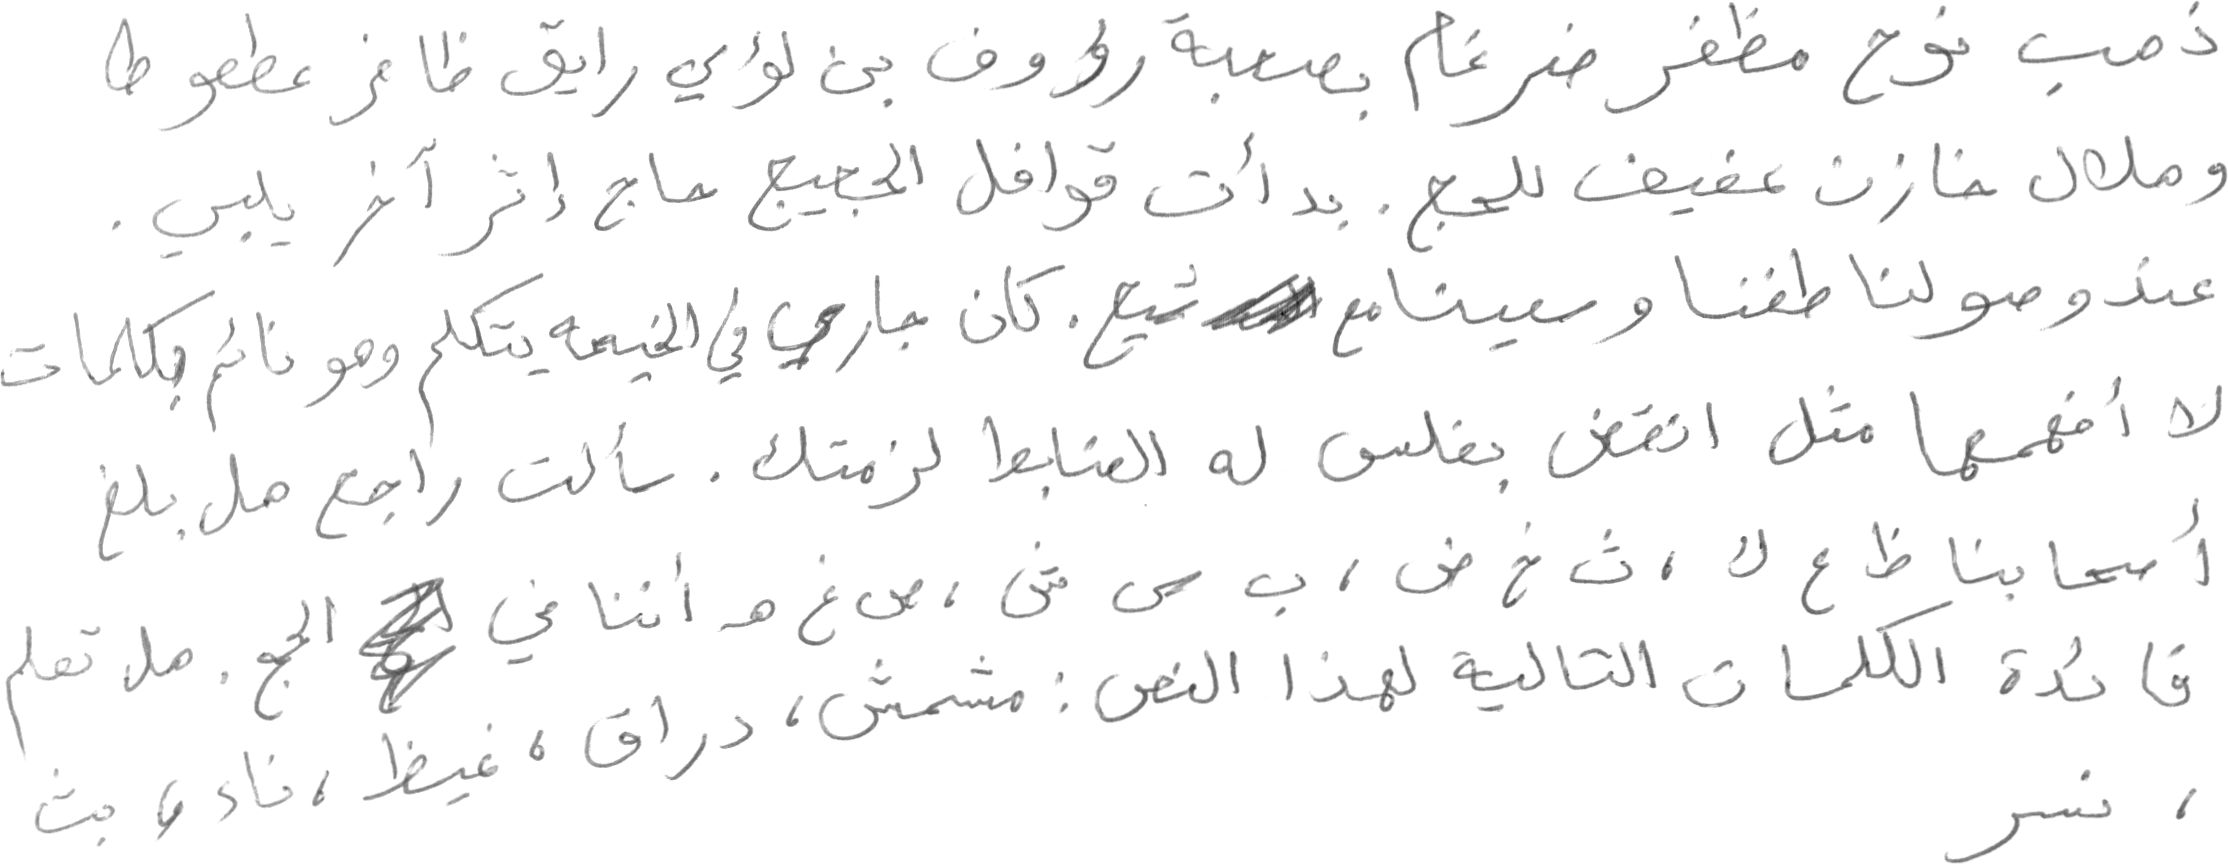 ذهب نوح مظفر ضرغام بصحبة رؤوف بن لؤي رايق ظافر عطعوط
وهلال خازن عفيف للحج. بدأت قوافل الحجيج حاج إثر آخر يلبي.
عند وصولنا طفنا وسعينا مع شيخ. كان جاري في الخيمه يتكلم وهو نائم بكلمات
لا أفهمها مثل انتقض بغلس له الضابط لزمتك. سألت راجع هل بلغ
أصحابنا ظ ع ك، ث خ ض، ب س ش، ص غ هـ أننا في الحج. هل تعلم
فائدة الكلمات التالية لهذا النص: مشمش، دراق، غيظ، ناء، بث
، نسر